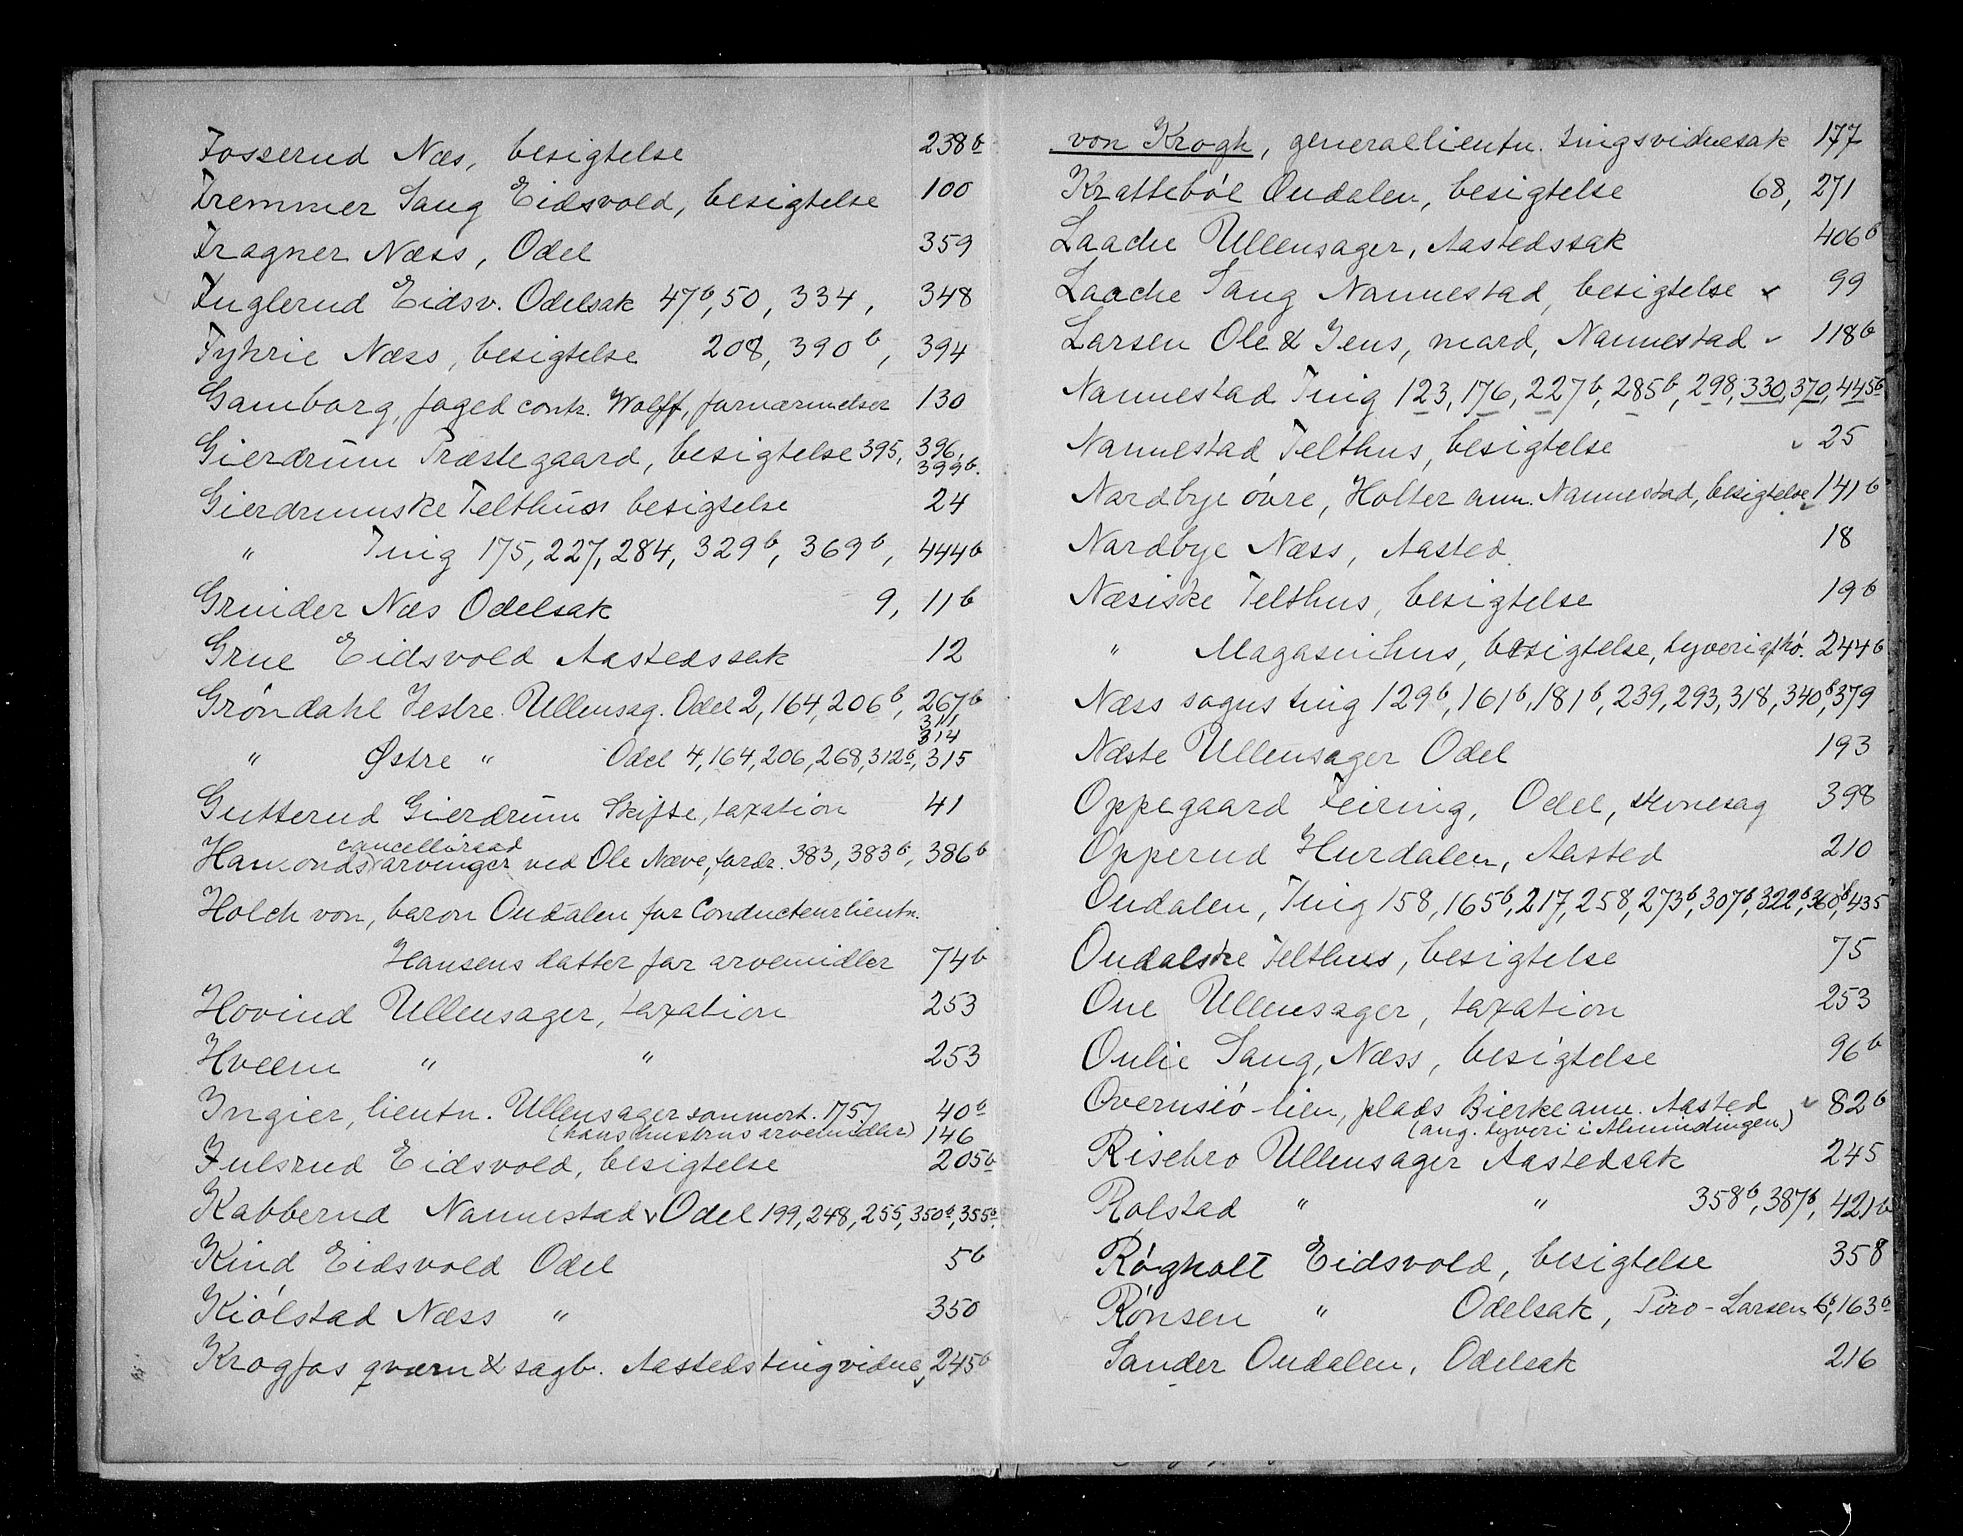 Fosserud Næs, besigtelse 238b
Fremmer Saug Eidsvold, besigtelse 100
Fragner Næss, Odel 359
Fuglerud Eidsv. Odelsak 47b, 50, 334, 348
Fyhrie Næss, besigtelse 208, 390b, 394
Gamborg, foged contr. Wolff, fornærmelser 130
Gierdrum Præstegaard, besigtelse 395, 396, 399b.
Gierdrumske Telthus besigtelse 24
" Ting 175, 227, 284, 329b, 369b, 444b
Grinder Næs Odelsak 9, 11b
Grue Eidsvold Aastedssak 12
Gröndahl Vestre Ullensag. Odel 2, 164, 206b, 267b 311 314
" Østre " Odel 4, 164, 206, 268, 312b, 315
Gutterud Gierdrum Skifte, taxation 41
cancelliraad
Hamonds arvinger ved Ole Næve, fordr. 383, 383b, 386b
Holck von, baron Oudalen for Conducteurlieutn.
Hansens datter for arvemidler 74b
Hovind Ullensager, taxation 253
Hveem " " 253
Ingier, lieutn. Ullensager sonmort. 1757 40b
(hans hustrus arvemidler) 146
Julsrud Eidsvold, besigtelse 205b
Kabberud Nannestad v Odel 199, 248, 255, 350b, 355b.
Kind Eidsvold Odel 5b
Kiölstad Næss " 350
Krogfos qværn & sagb. Aastedstingvidne, 245b
von Krogh, generallieutn. tingsvidnesak 177
Krattebøl Oudalen, besigtelse 68, 271
Laache Ullensager, Aastedssak 406b
Laache Saug Nannestad, besigtelse v 99
Larsen Ole & Jens, mord, Nannestad v 118b
Nannestad Ting 123, 176, 227b, 285b, 298, 330, 370, 445b
Nannestad Telthus, besigtelse v 25
Nordbye övre, Holter ann. Nannestad, besigtelse v 141b
Nordbye Næss, Aasted 18
Næsiske Telthus, besigtelse 19b
" Magasinhus, besigtelse, tyveriforhö. 244b
Næss sogns ting 129b, 161b, 181b, 239, 293, 318, 340b, 379
Næste Ullensager Odel 193
Oppegaard Feiring, Odel, skovnesag 398
Opperud Hurdalen, Aasted 210
Oudalen, Ting 158, 165b, 217, 258, 273b, 307b, 322b, 360b, 435
Oudalske Telthus, besigtelse 75
Oue Ullensager, taxation 253
Oulie Saug, Næss, besigtelse 96b
Overnsiö-lien, plads Bierke ann. Aasted v 82b
(ang. tyveri i Almindingen)
Risebro Ullensager Aastedsak 245
Rolstad " " 358b, 387b, 421b
Røgholt Eidsvold, besigtelse 358
Rönsen " Odelsak, Piro-Larsen 6b, 163b
Sander Oudalen, Odelsak 216